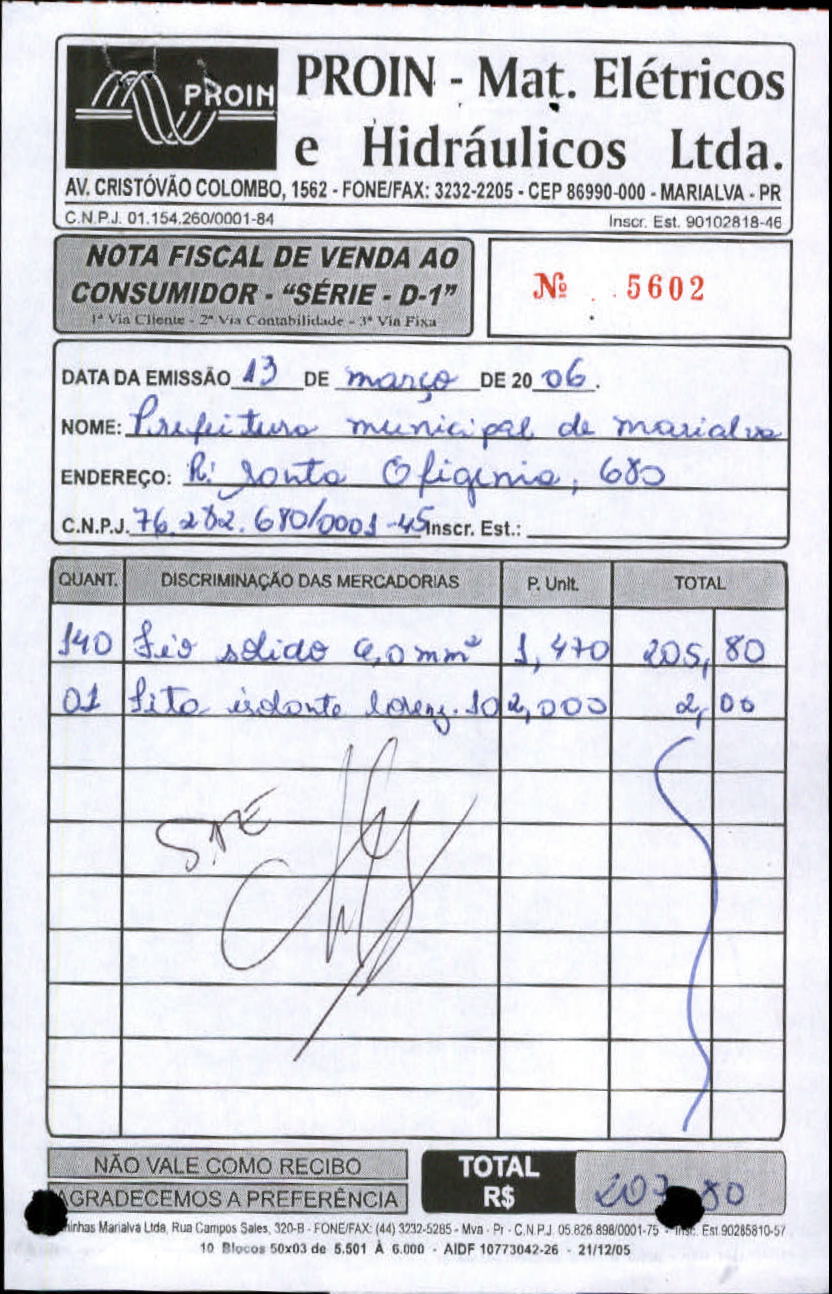 PROIN
PROIN - Mat. Elétricos
e Hidráulicos Ltda.
AV. CRISTÓVÃO COLOMBO, 1562 - FONE/FAX: 3232-2205 - CEP 86990-000 - MARIALVA - PR
C.N.P.J. 01.154.260/0001-84 Inscr. Est. 90102818-46
NOTA FISCAL DE VENDA AO
CONSUMIDOR - “SÉRIE - D-1”
1ª Via Cliente - 2ª Via Contabilidade - 3ª Via Fixa
Nº 5602
DATA DA EMISSÃO 13 DE março DE 20 06.
NOME: Prefeitura municipal de marialva
ENDEREÇO: R: Santa Efigenia, 680
C.N.P.J. 76.282.680/0001-45 Inscr. Est.:
QUANT. DISCRIMINAÇÃO DAS MERCADORIAS P. Unit. TOTAL
140 fio solido 4,0 mm² 1,470 205,80
01 fita isolante 10 2,000 2,00
NÃO VALE COMO RECIBO
AGRADECEMOS A PREFERÊNCIA
TOTAL
R$ 207 80
Marialva Ltda, Rua Campos Sales, 320-B - FONE/FAX: (44) 3232-5285 - Mva - Pr - C.N.P.J. 05.826.898/0001-75 - Insc. Est 90285810-57
10 Blocos 50x03 de 5.501 À 6.000 - AIDF 10773042-26 - 21/12/05